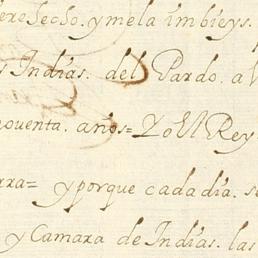 derecho. y me la imbieys.
y Indias. del Pardo. a V
noventa. años= Yo El Rey
rra= y porque cada dia. s
y Camara de Indias. las